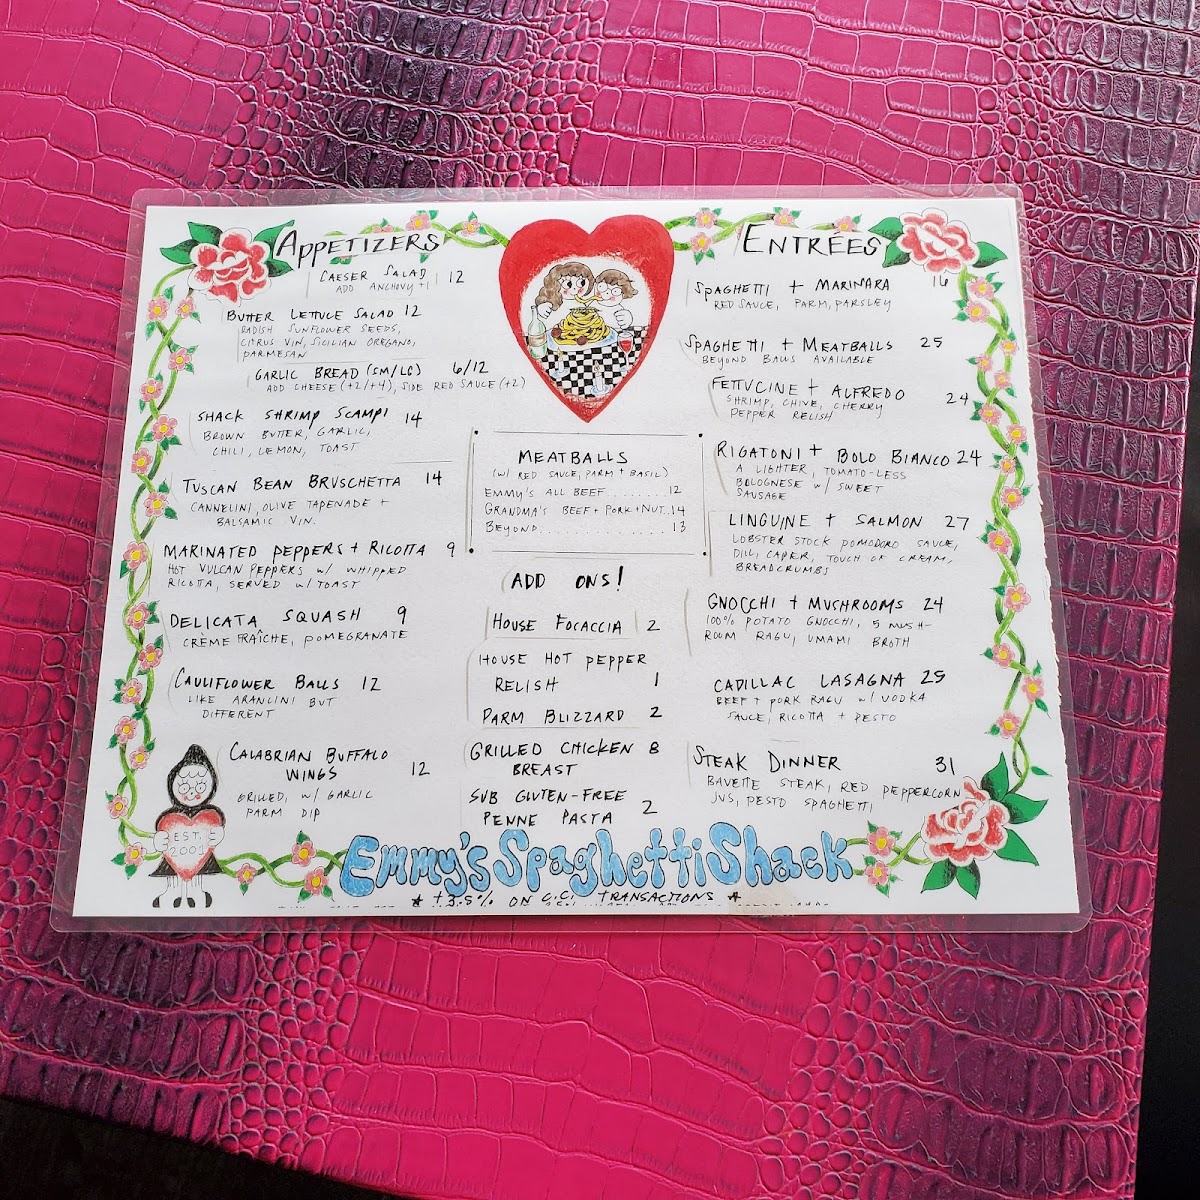 APPETIZERS
CAESER SALAD 12
ADD ANCHOVY +1
BUTTER LETTUCE SALAD 12
RADISH SUNFLOWER SEEDS,
CITRUS VIN, SICILIAN OREGANO,
PARMESAN
GARLIC BREAD (SM/LG) 6/12
ADD CHEESE (+2/+4), SIDE RED SAUCE (+2)
SHACK SHRIMP SCAMPI 14
BROWN BUTTER, GARLIC,
CHILI, LEMON, TOAST
TUSCAN BEAN BRUSCHETTA 14
CANNELINI, OLIVE TAPENADE +
BALSAMIC VIN.
MARINATED PEPPERS + RICOTTA 9
HOT VULCAN PEPPERS W/ WHIPPED
RICOTTA, SERVED W/ TOAST
DELICATA SQUASH 9
CRÈME FRAÎCHE, POMEGRANATE
CAULIFLOWER BALLS 12
LIKE ARANCINI BUT
DIFFERENT
CALABRIAN BUFFALO
WINGS 12
GRILLED, W/ GARLIC
PARM DIP
EST.
2001
MEATBALLS
(W/ RED SAUCE, PARM + BASIL)
EMMY'S ALL BEEF........12
GRANDMA'S BEEF + PORK + NUT..14
BEYOND................13
ADD ONS!
HOUSE FOCACCIA 2
HOUSE HOT PEPPER
RELISH 1
PARM BLIZZARD 2
GRILLED CHICKEN 8
BREAST
SUB GLUTEN-FREE
PENNE PASTA 2
ENTRÉES
SPAGHETTI + MARINARA 16
RED SAUCE, PARM, PARSLEY
SPAGHETTI + MEATBALLS 25
BEYOND BALLS AVAILABLE
FETTUCINE + ALFREDO 24
SHRIMP, CHIVE, CHERRY
PEPPER RELISH
RIGATONI + BOLO BIANCO 24
A LIGHTER, TOMATO-LESS
BOLOGNESE W/ SWEET
SAUSAGE
LINGUINE + SALMON 27
LOBSTER STOCK POMODORO SAUCE,
DILL, CAPER, TOUCH OF CREAM,
BREADCRUMBS
GNOCCHI + MUSHROOMS 24
100% POTATO GNOCCHI, 5 MUSH-
ROOM RAGU, UMAMI BROTH
CADILLAC LASAGNA 25
BEEF + PORK RAGU W/ VODKA
SAUCE, RICOTTA + PESTO
STEAK DINNER 31
BAVETTE STEAK, RED PEPPERCORN
JUS, PESTO SPAGHETTI
Emmy's Spaghetti Shack
★ +3.5% ON C.C. TRANSACTIONS ★